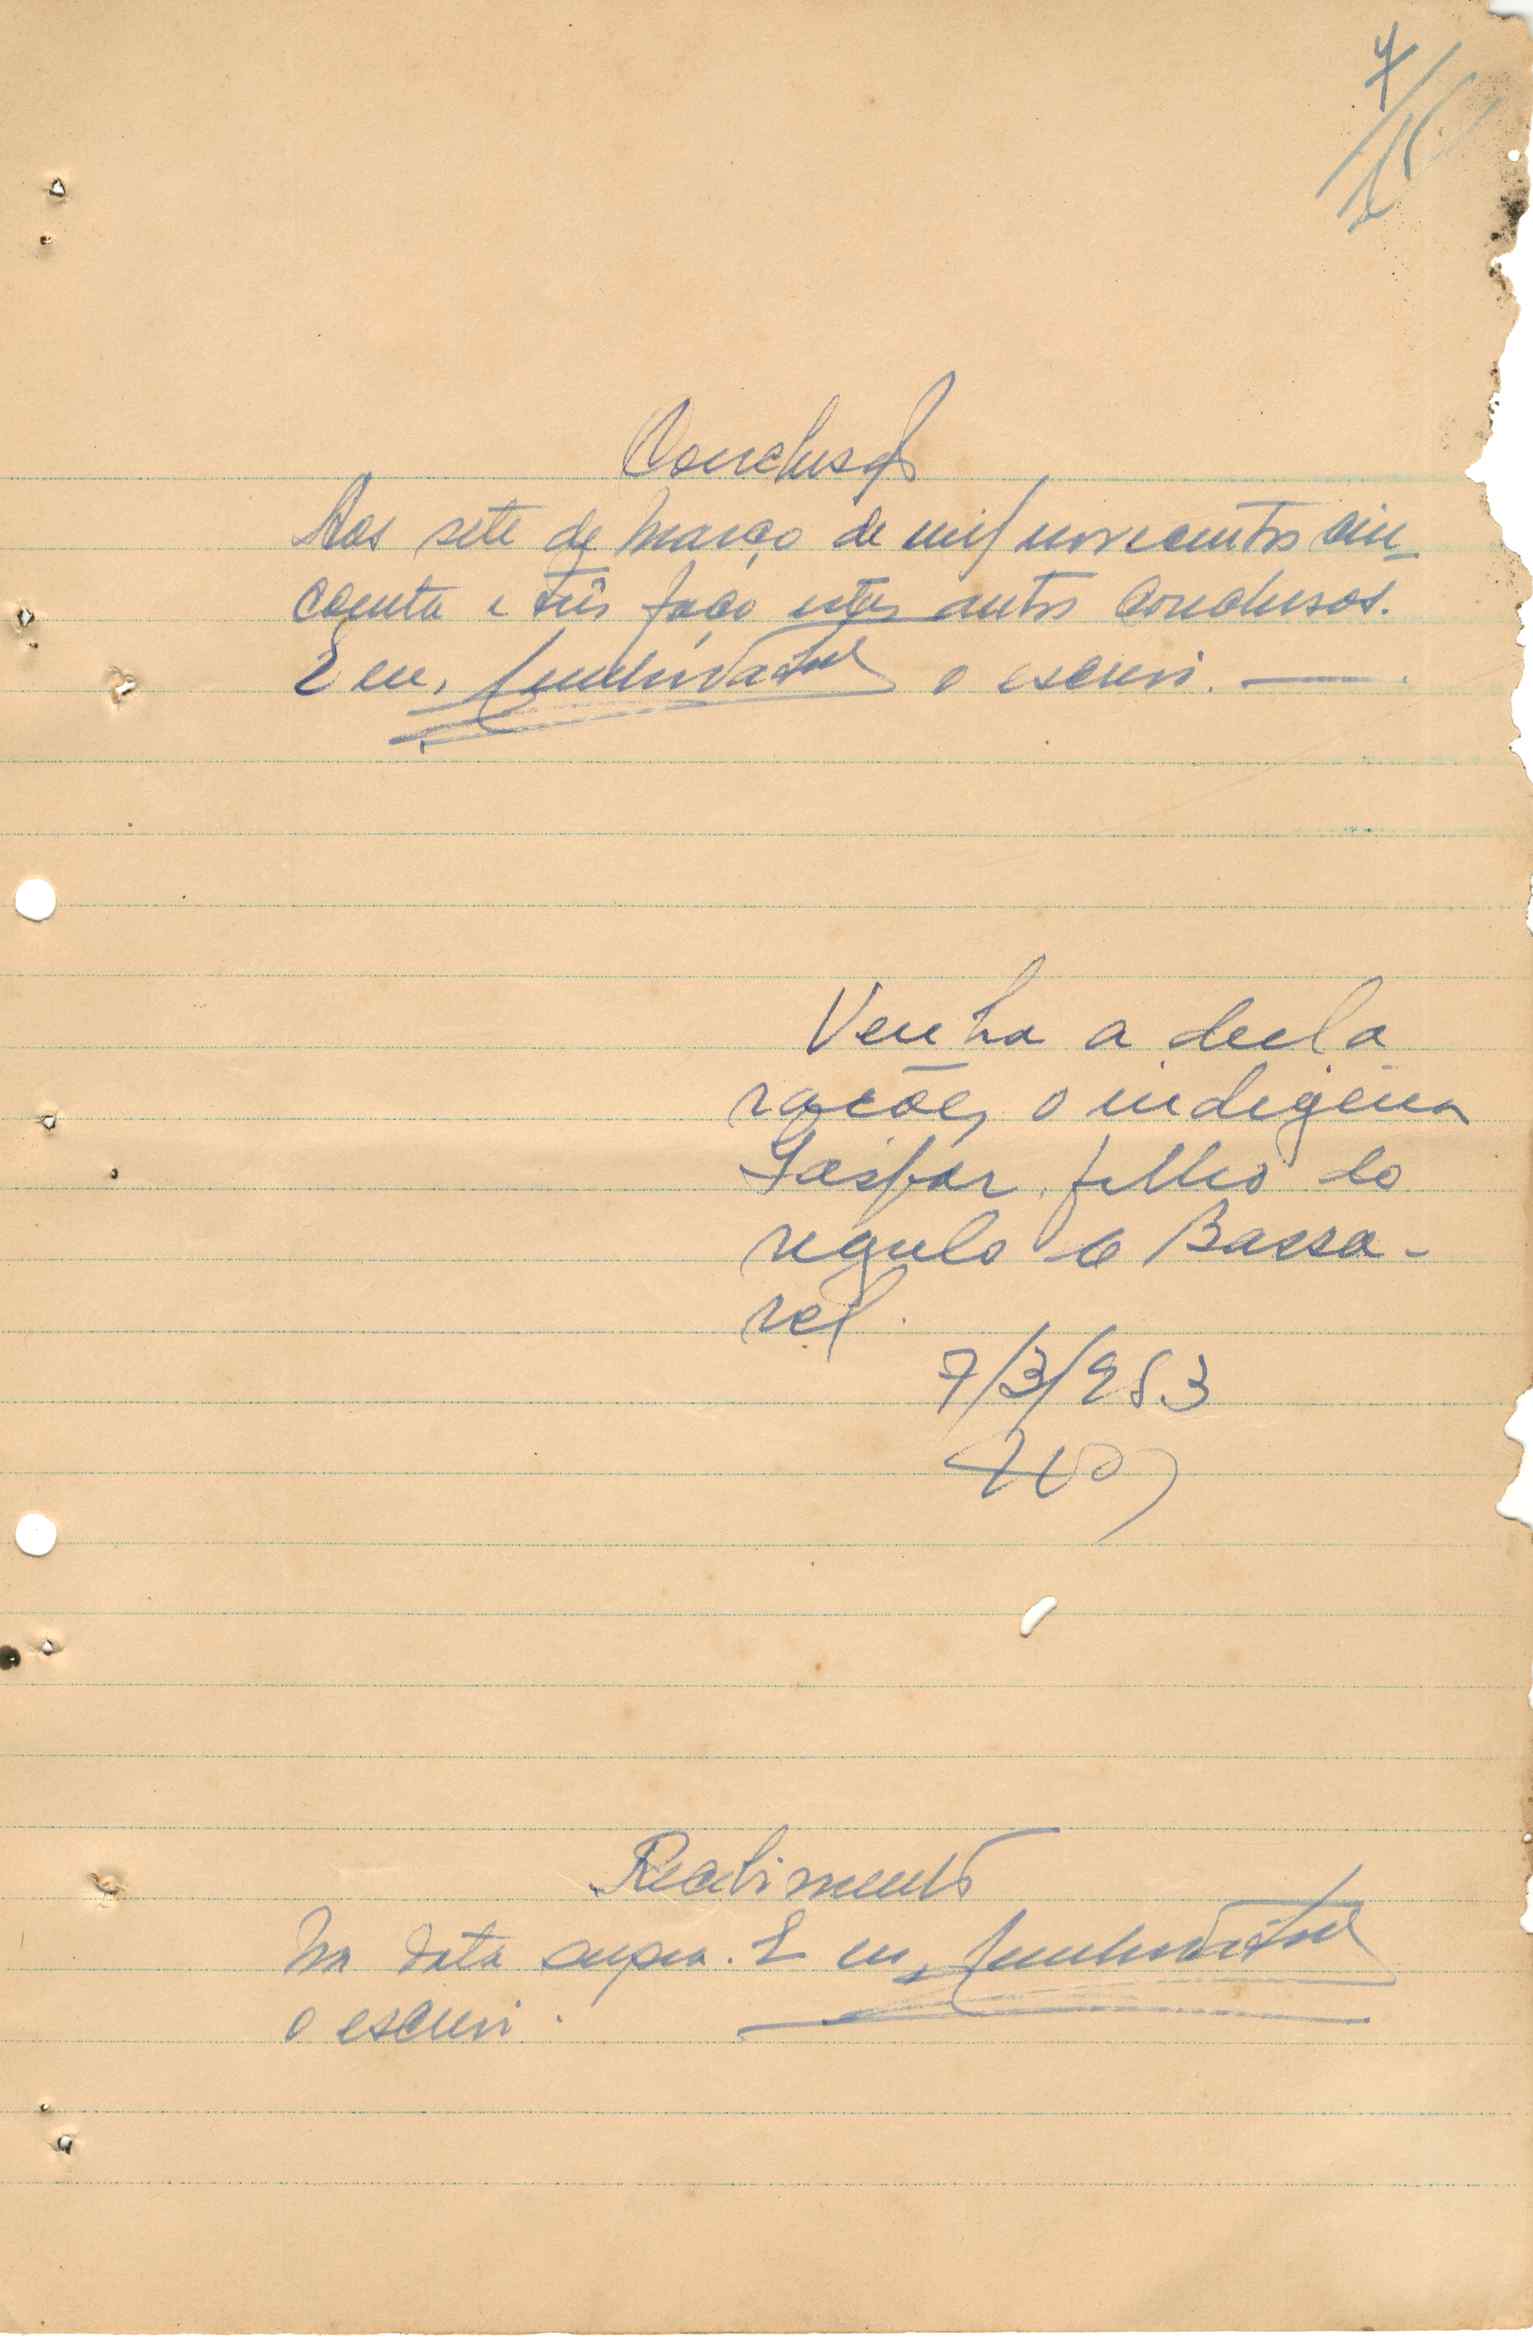 7
Conclusão
Aos sete de Março de mil novecentos cin-
coenta e três faço estes autos conclusos.
E eu, o escrivi.
Venha a decla
rações o indigena
Gaspar, filho do
regulo de Bassa-
rel.
7/3/953
Recebimento
Na data supra. E eu,
o escrivi.